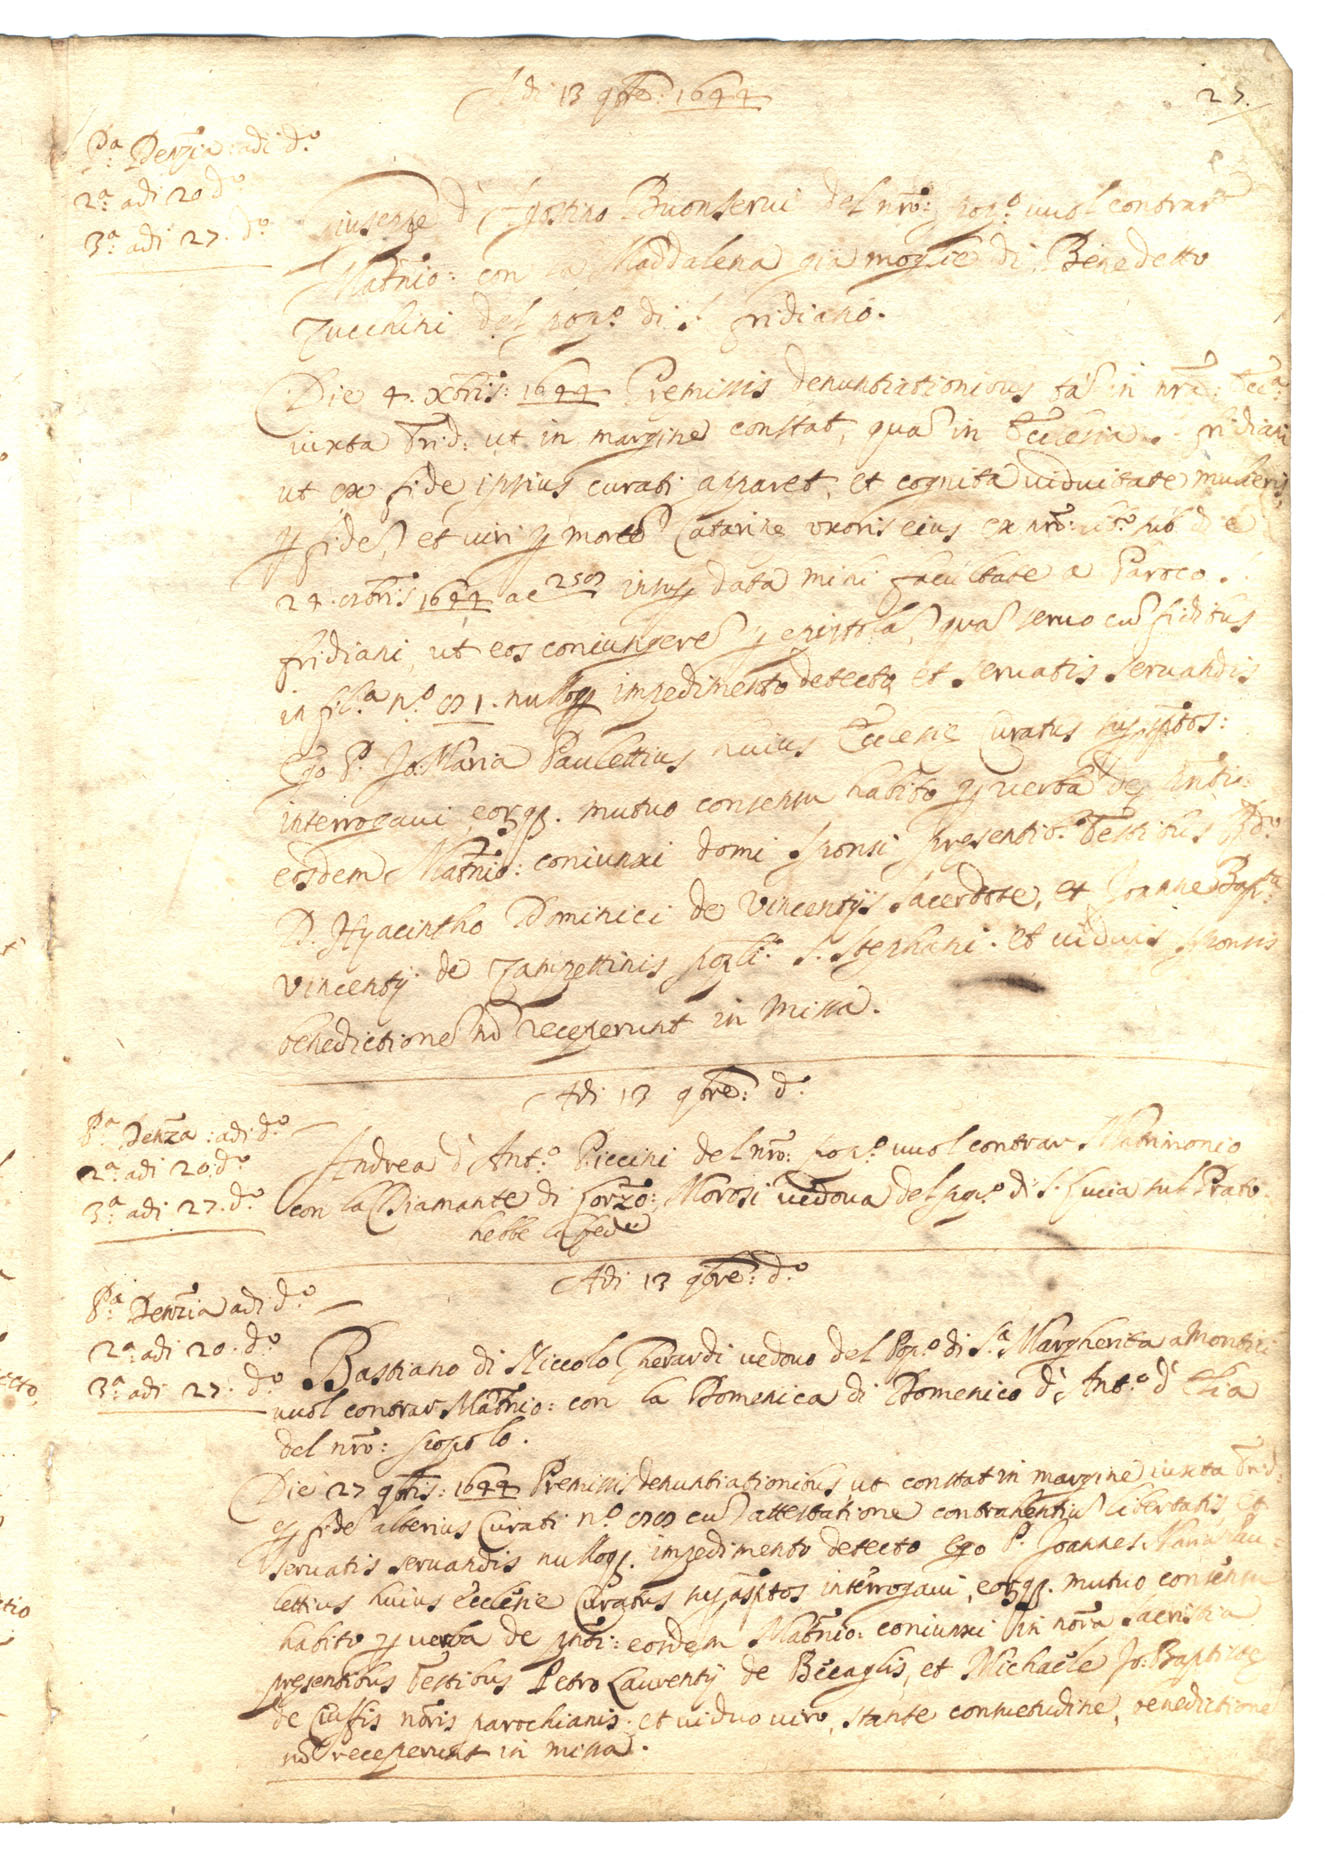 Adi 13 9bre: 1644
27.
Pa Denzia: adi d.o
2a: adi 20 d.o
3a: adi 27. d.o
Giuseppe d'Agostino Buonserui del nro: pop.o vuol contrar
Matrio: con la Maddalena già moglie di Benedetto
Zucchini del pop.o di S. fridiano.
Die 4. Xbris: 1644 Premissis denuntiationibus ta in nra: Ecc.a
iuxta Trid: ut in margine constat, qua in Ecclesia S. fridiani
ut ex fide ipsius curati apparet, et cognita viduitate mulieris
p fide, et viri p morte Catarine uxoris eius ex nro: sub die
24. 1644 ac insup data mihi facultate a Paroco S.
fridiani, ut eos coniungere p epistola, qua seruo cu fidibus
in fil.a n.o 91. nulloq impedimento detecto et seruatis seruandis
Ego P. Jo: Maria Paulettius huius Ecclesie Curatus sup.sptos:
interrogaui, eorq. mutuo consensu habito p verba de pnti:
eosdem Matrio: coniunxi domi sponsi presentib. Testibus Rdo
D. Hyacintho Dominici de Vincentijs sacerdote, et Joanne Bap.ta
Vincentij de Zampettinis popli: S. Stephani. et viduis sponsis
benedictione no receperunt in Missa.
Adi 13 9bre: d.o
P.a Denza: adi d.o
2a: adi 20. d.o
3a: adi 27. d.o
Andrea d'Ant.o Piccini del nro: pop.o vuol contrar Matrimonio
con la Diamante di Lorzo: Morosi vedoua del pop.o di S. Lucia sul Prato.
hebbe la fede
Adi 13 9bre: d.o
P.a Denzia adi d.o
2a: adi 20. d.o
3a: adi 27. d.o
Bastiano di Niccolo Gherardi vedouo del Pop.o di S.a Margherita a Montici
vuol contrar Matrio: con la Domenica di Domenico d'Ant.o d'Elia
del nro: popolo.
Die 27 9bris: 1644 Premissis denuntiationibus ut constat in margine iuxta Trid:
ex fide alterius Curati n.o cu attestatione contrahentiu libertatis, et
seruatis seruandis nulloq. impedimento detecto Ego P. Joannes Maria Pau-
lettius huius Ecclesie Curatus sup.asptos interrogaui, eorq. mutuo consensu
habito p verba de pnti: eosdem Matrio: coniunxi in nora Sacristia
presentibus Testibus Petro Laurentij de Becaglis, et Michaele Jo: Baptiste
de Ciuffis noris parochianis. et viduo viro, stante consuetudine, benedictione
no receperunt in missa.